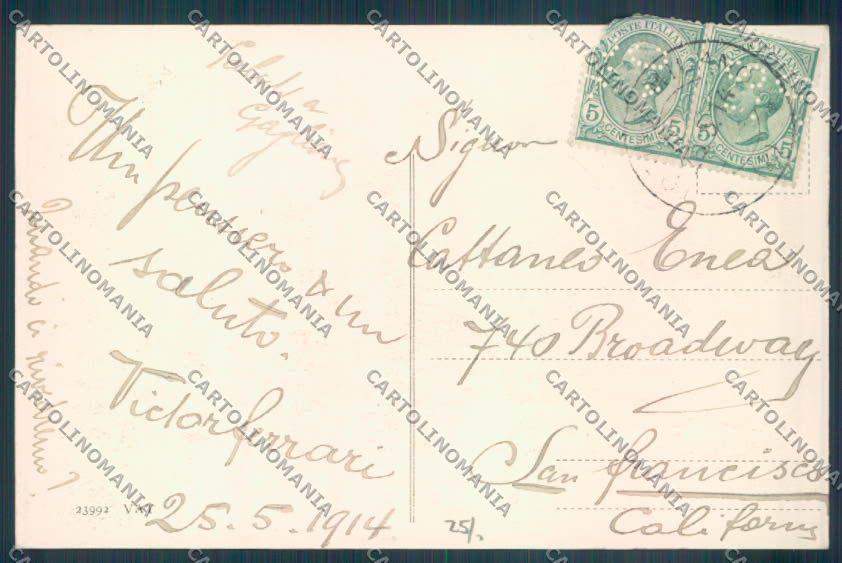 Un pensiero & un
saluto.
Victor Ferrari
25.5.1914
Quando ci rivedremo?
23992
25/.
POSTE ITALIANE
5 CENTESIMI 5
5 CENTESIMI 5
Signor
Cattaneo Enea
740 Broadway
San Francisco
California
CARTOLINOMANIA